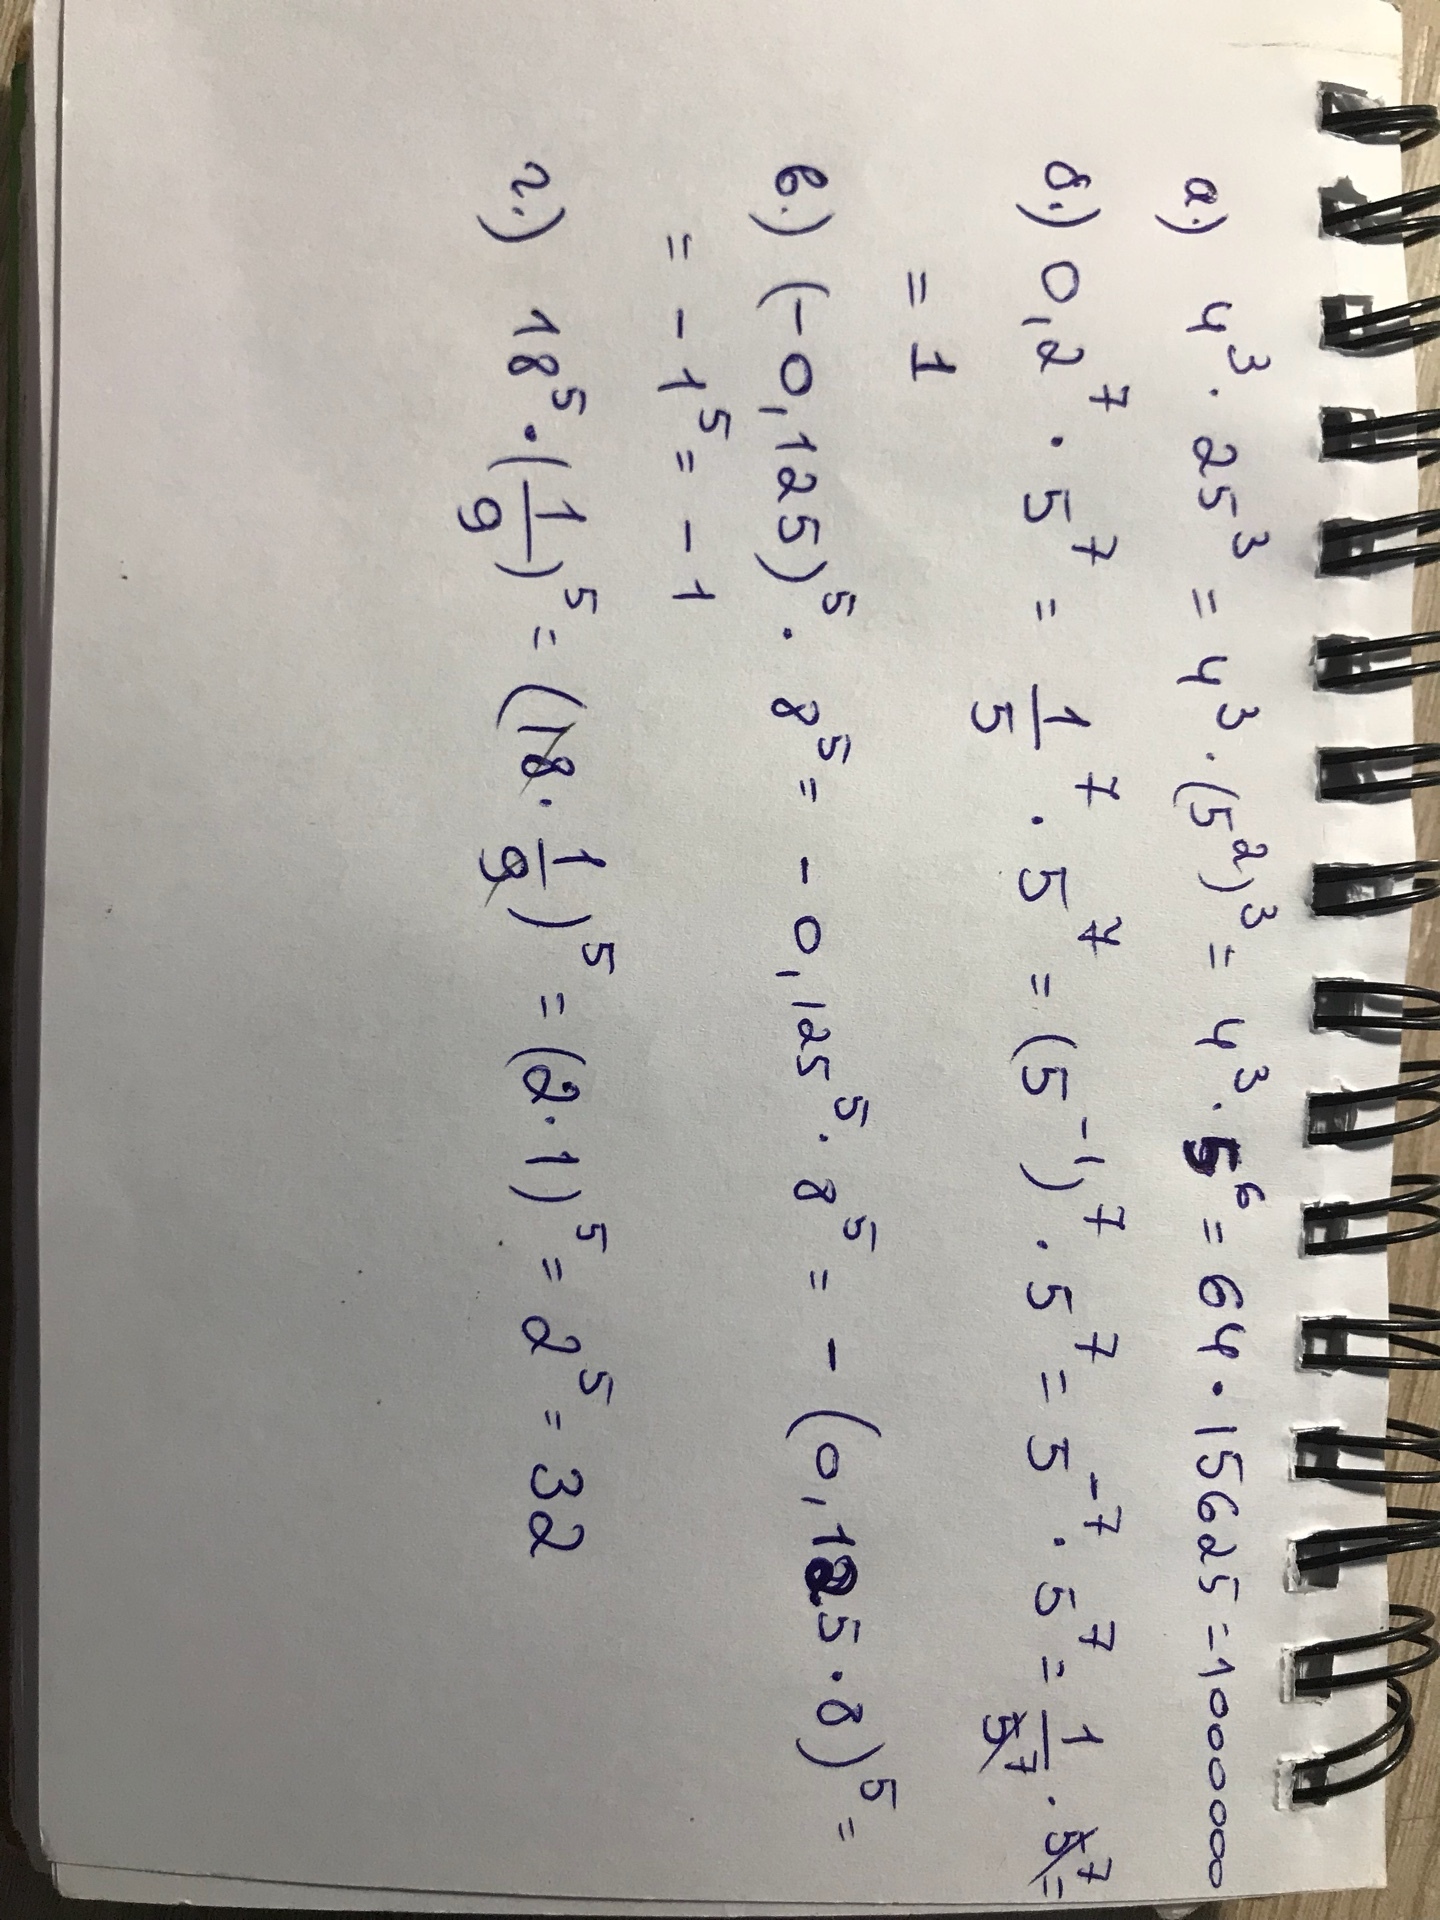 а.) 4³ · 25³ = 4³ · (5²)³ = 4³ · 5⁶ = 64 · 15625 = 1000000
б.) 0,2⁷ · 5⁷ = 1/5⁷ · 5⁷ = (5⁻¹)⁷ · 5⁷ = 5⁻⁷ · 5⁷ = 1/5⁷ · 5⁷ =
= 1
в.) (-0,125)⁵ · 8⁵ = -0,125⁵ · 8⁵ = -(0,125 · 8)⁵ =
= -1⁵ = -1
г.) 18⁵ · (1/9)⁵ = (18 · 1/9)⁵ = (2 · 1)⁵ = 2⁵ = 32